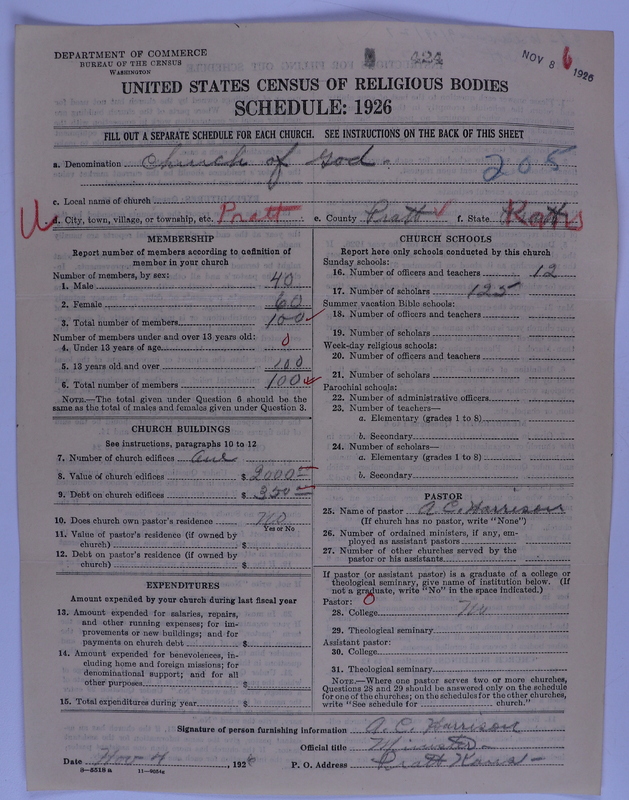 DEPARTMENT OF COMMERCE
BUREAU OF THE CENSUS
WASHINGTON
NOV 8 1926
UNITED STATES CENSUS OF RELIGIOUS BODIES
SCHEDULE: 1926
FILL OUT A SEPARATE SCHEDULE FOR EACH CHURCH. SEE INSTRUCTIONS ON THE BACK OF THIS SHEET
a. Denomination Church of God. 205
c. Local name of church
d. City, town, village, or township, etc. Pratt e. County Pratt f. State Kans
MEMBERSHIP
Report number of members according to definition of member in your church
Number of members, by sex:
1. Male 40
2. Female 60
3. Total number of members 100
Number of members under and over 13 years old:
4. Under 13 years of age 0
5. 13 years old and over 100
6. Total number of members 100
NOTE.—The total given under Question 6 should be the
same as the total of males and females given under Question 3.
CHURCH BUILDINGS
See instructions, paragraphs 10 to 12
7. Number of church edifices one
8. Value of church edifices $ 2000
9. Debt on church edifices $ 350
10. Does church own pastor's residence No
Yes or No
11. Value of pastor's residence (if owned by
church) $
12. Debt on pastor's residence (if owned by
church) $
EXPENDITURES
Amount expended by your church during last fiscal year
13. Amount expended for salaries, repairs,
and other running expenses; for im-
provements or new buildings; and for
payments on church debt $
14. Amount expended for benevolences, in-
cluding home and foreign missions; for
denominational support; and for all
other purposes $
15. Total expenditures during year $
CHURCH SCHOOLS
Report here only schools conducted by this church
Sunday schools:
16. Number of officers and teachers 12
17. Number of scholars 125
Summer vacation Bible schools:
18. Number of officers and teachers
19. Number of scholars
Week-day religious schools:
20. Number of officers and teachers
21. Number of scholars
Parochial schools:
22. Number of administrative officers
23. Number of teachers—
a. Elementary (grades 1 to 8)
b. Secondary
24. Number of scholars—
a. Elementary (grades 1 to 8)
b. Secondary
PASTOR
25. Name of pastor A. C. Harrison
(If church has no pastor, write "None")
26. Number of ordained ministers, if any, em-
ployed as assistant pastors
27. Number of other churches served by the
pastor or his assistants
If pastor (or assistant pastor) is a graduate of a college or
theological seminary, give name of institution below. (If
not a graduate, write "No" in the space indicated.)
Pastor: 0
28. College No
29. Theological seminary
Assistant pastor:
30. College
31. Theological seminary
NOTE.—Where one pastor serves two or more churches,
Questions 28 and 29 should be answered only on the schedule
for one of the churches; on the schedules for the other churches,
write "See schedule for church."
Signature of person furnishing information A. C. Harrison
Official title Minister
Date Nov 4, 1926 P. O. Address Pratt Kans
8-5518 a 11-9554a